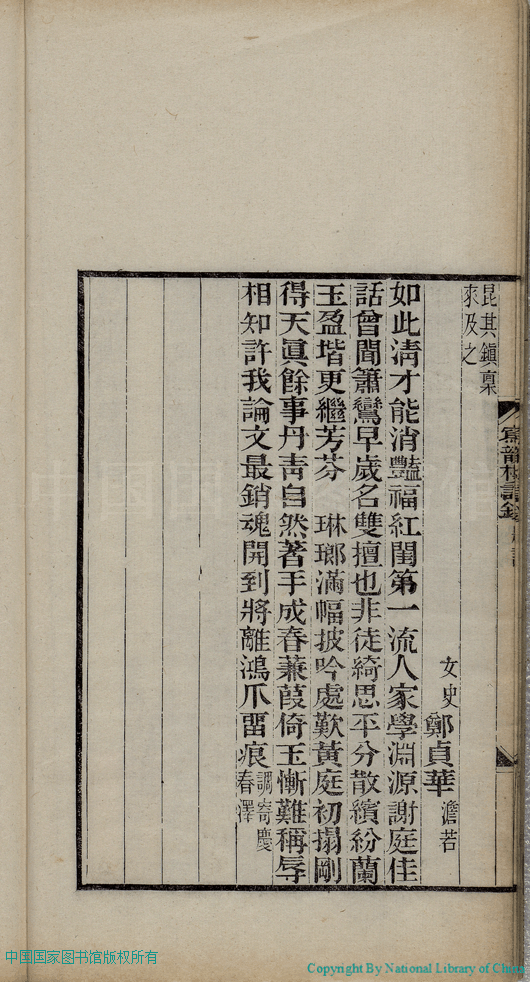 昆其鎮稟
來及之
女史鄭貞華澹若
如此清才能消豔福紅閨第一流人家學淵源謝庭佳
話曾聞簫鸞早歲名雙擅也非徒綺思平分散繽紛蘭
玉盈堦更繼芳芬　琳瑯滿幅披吟處歎黃庭初搨剛
得天眞餘事丹靑自然著手成春蒹葭倚玉慚難稱辱
相知許我論文最銷魂開到將離鴻爪畱痕調寄慶
春澤
中国国家图书馆版权所有
Copyright By National Library of China